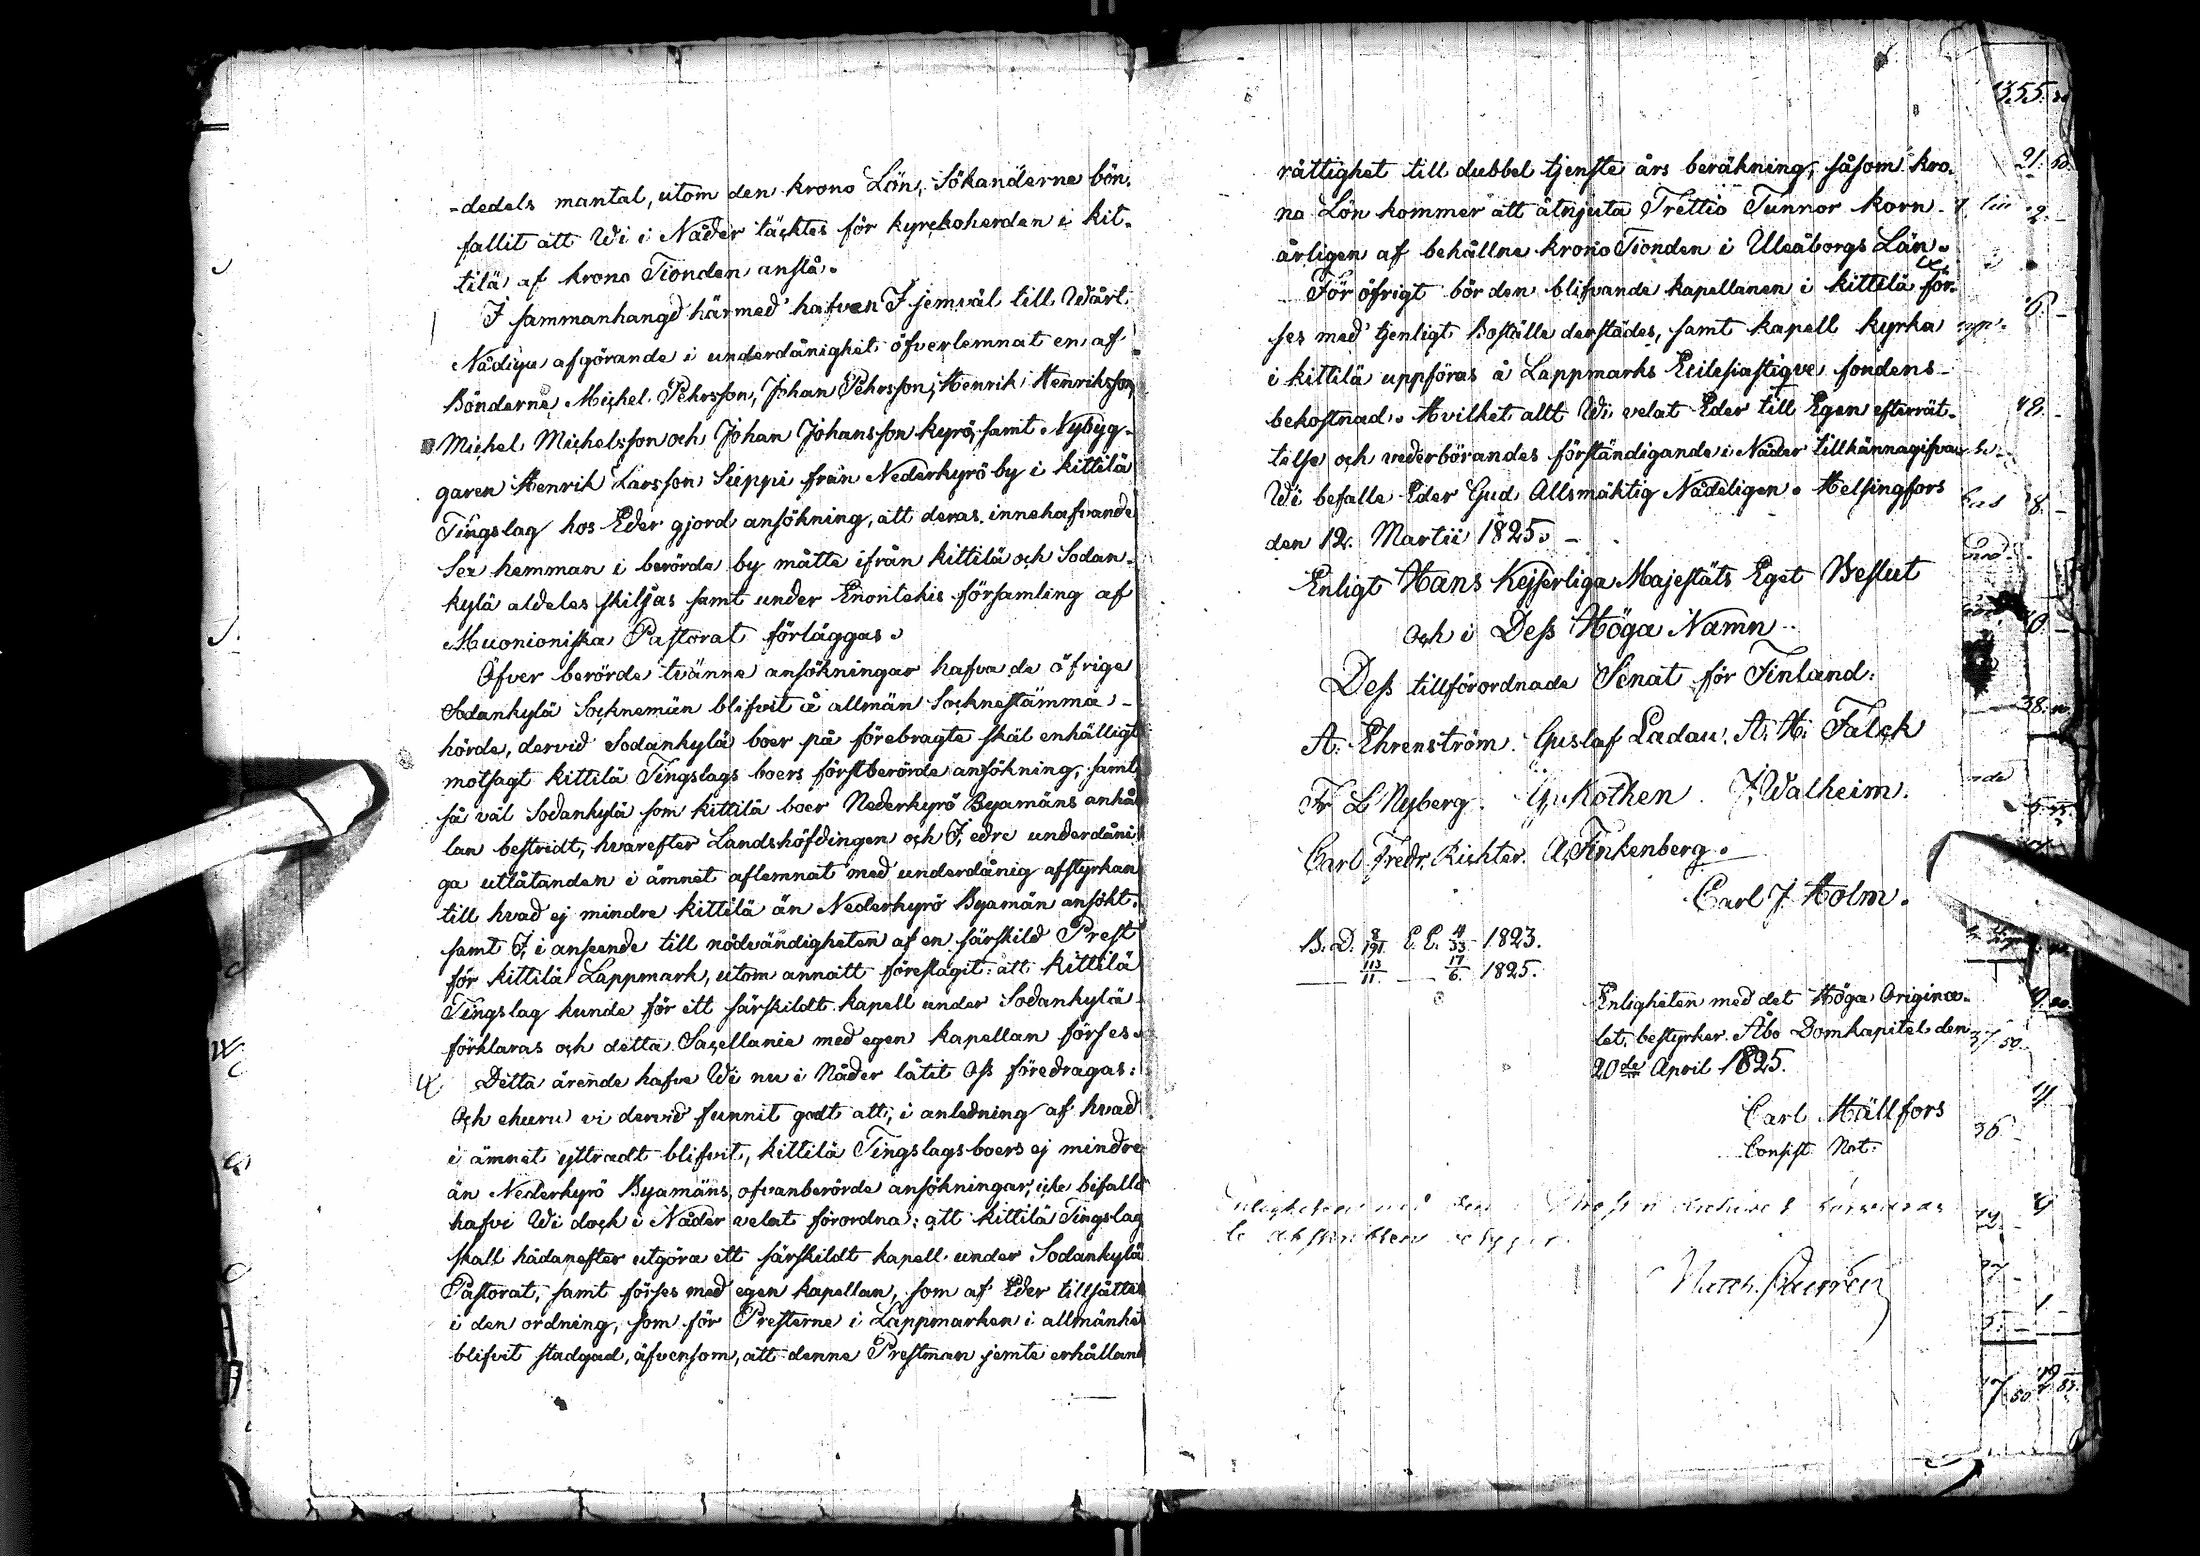 -dedels mantal, utom den krono Lön, Sökanderne bön-
fallit att Wi i Nåder täcktes för kyrckoherden i kit-
tilä af krono Tionden anslå.
I sammanhangd härmed hafven I jemväl till Wårt
Nådiga afgörande i underdånighet öfverlemnat en af
Bönderne Michel Pehrsson, Johan Pehrsson, Henrik Henriksson,
Michel Michelsson och Johan Johansson kyrö, samt Nybyg-
garen Henrik Larsson Sieppi från Nederkyrö by i kittilä
Tingslag hos Eder gjord ansökning, att deras innehafvande
Sex hemman i berörde by måtte ifrån kittilä och Sodan-
kylä aldeles skiljas samt under Enontekis församling af
Muonioniska Pastorat förläggas.
Öfver berörde tvänne ansökningar hafva de öfrige
Sodankylä Socknemän blifvit å allmän Socknestämma
hörde, dervid Sodankylä boer på förebragte skäl enhälligt
motsagt kittilä Tingslags boers förstberörde ansökning, samt
så väl Sodankylä som kittilä boer Nederkyrö Byamäns anhål
lan bestridt, hvarefter Landshöfdingen och I, edre underdåni
ga utlåtanden i ämnet aflemnat med underdånig afstyrkan
till hvad ej mindre kittilä än Nederkyrö Byamän ansökt,
samt I, i anseende till nödvändigheten af en särskild Prest
för kittilä Lappmark, utom annatt föreslagit: att kittilä
Tingslag kunde för ett särskildt kapell under Sodankylä
förklaras och detta Sacellanie med egen kapellan förses.
Detta ärende hafve Wi nu i Nåder låtit Oss föredragas:
Och ehuru vi dervid funnit godt att, i anledning af hvad
i ämnet yttradt blifvit, kittilä Tingslagsboers ej mindre
än Nederkyrö Byamäns, ofvanberörde ansökningar, icke bifalla
hafve Wi doch i Nåder velat förordna: att kittilä Tingslag
skall hädanefter utgöra ett särskildt kapell under Sodankylä
Pastorat, samt förses med egen kapellan, som af Eder tillsättes
i den ordning, som för Presterne i Lappmarken i allmänhet
blifvit stadgad, äfvensom, att denne Prestman jemte erhålland
rättighet till dubbel tjenste års beräkning, såsom kro-
no Lön kommer att åtnjuta Trettio Tunnor korn
årligen af behållne krono Tionden i Uleåborgs Län.
För öfrigt bör den blifvande kapellanen i kittilä för-
ses med tjenligt Boställe derstädes, samt kapell kyrka
i kittilä uppföras å Lappmarks Ecclesiastiqve fondens
bekostnad. Hvilket allt Wi velat Eder till Egen efterrät-
telse och vederbörandes förständigande i Nåder tillkännagifva
Wi befalle Eder Gud Allsmäktig Nådeligen. Helsingfors
den 12. Martii 1825.
Enligt Hans Kejserliga Majestäts Eget Beslut
Och i Dess Höga Namn
Dess tillförordnade Senat för Finland:
A. Ehrenström. Gustaf Ladau. A. H. Falck
Fr. L Nyberg. G. Kothen. J. Walheim.
Carl Fredr. Richter. A. Finkenberg.
Carl J Holm.
B. D. 8/191 E. E. 4/33 1823.
— 113/11. — 17/6. 1825.
Enligheten med det Höga Origina-
let, bestyrker. Åbo Domkapitel den
20de April 1825.
Carl Hällfors
Consist. Not.